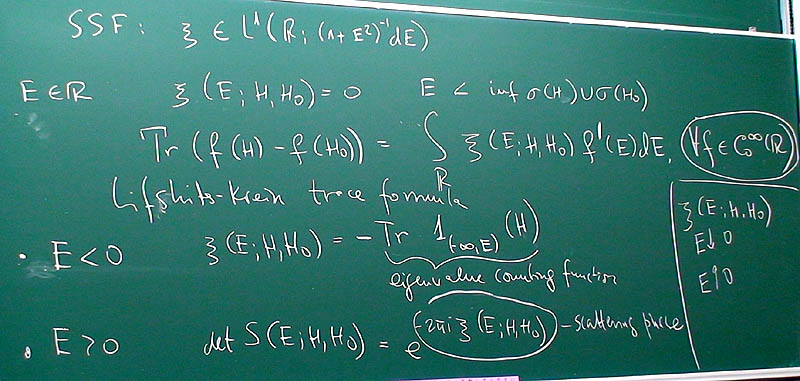 SSF: ξ ∈ L¹(ℝ; (1+E²)⁻¹dE)
E∈ℝ ξ(E; H, H₀) = 0 E < inf σ(H)∪σ(H₀)
Tr (f(H) - f(H₀)) = ∫_ℝ ξ(E; H, H₀) f'(E)dE, ∀f ∈ C₀^∞(ℝ)
Lifshits-Krein trace formula
• E<0 ξ(E; H, H₀) = - Tr 1_(-∞,E)(H)
eigenvalue counting function
• E>0 det S(E; H, H₀) = e^(-2πi ξ(E; H, H₀)) - scattering phase
ξ(E; H, H₀)
E↓0
E↑0